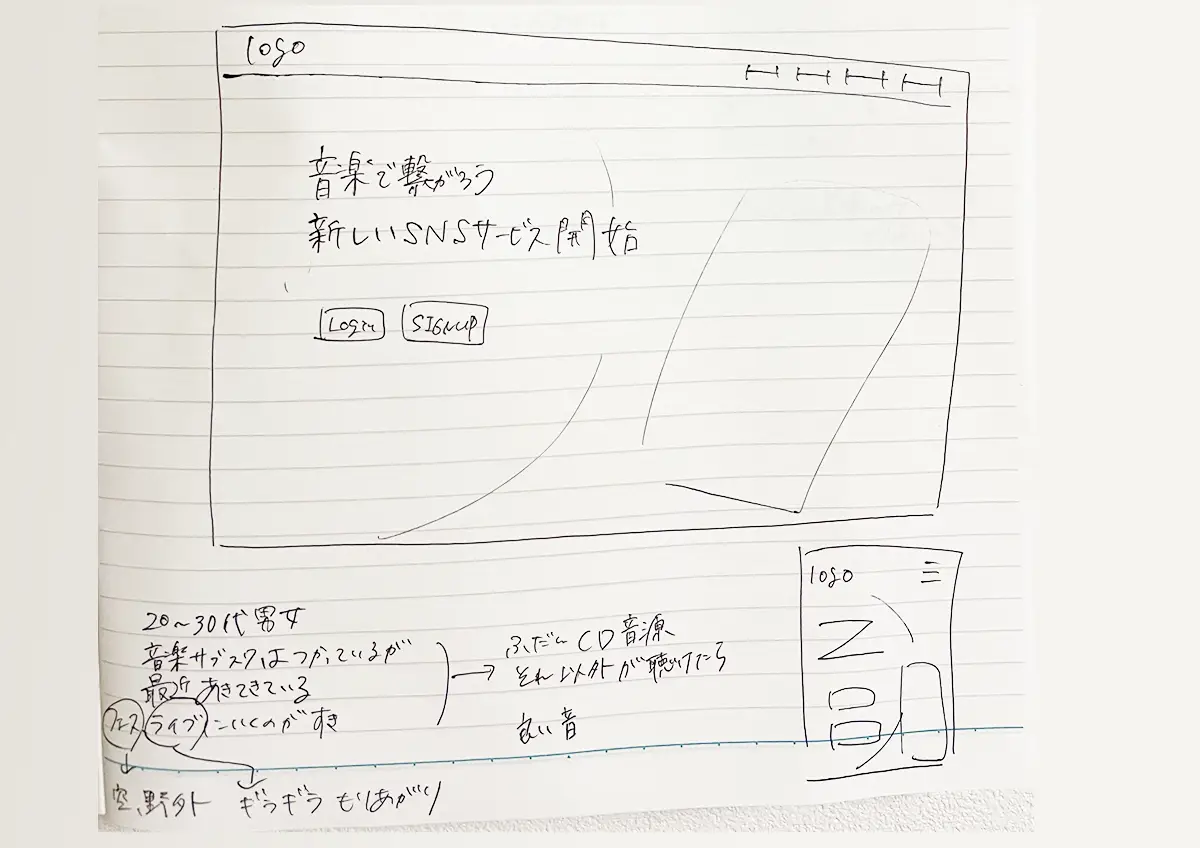 logo
音楽で繋がろう
新しいSNSサービス開始
Login
SIGNUP
logo
20〜30代男女
音楽サブスクはつかっているが
最近あきてきている
フェス ライブにいくのがすき
ふだん CD音源
それ以外が聴けたら
良い音
空、野外
ギラギラ もりあがり